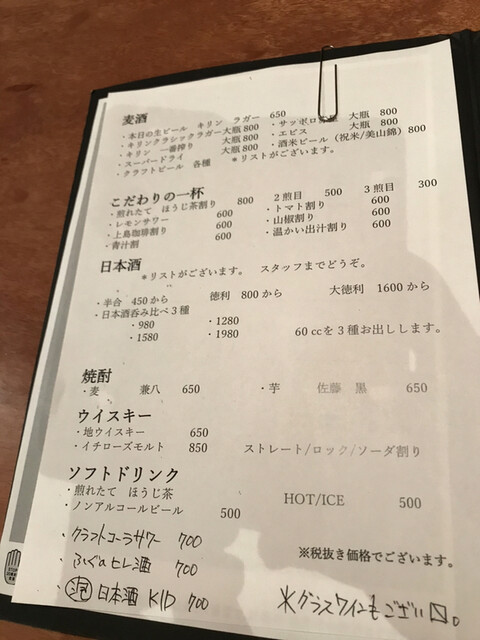 麦酒
・本日の生ビール キリン ラガー 650
・キリンクラシックラガー大瓶 800
・キリン 一番搾り 大瓶 800
・スーパードライ 大瓶 800
・クラフトビール 各種 ＊リストがございます。
・サッポロ 大瓶 800
・エビス 大瓶 800
・酒米ビール（祝米/美山錦）800
こだわりの一杯
・煎れたて ほうじ茶割り 800 2煎目 500 3煎目 300
・レモンサワー 600 ・トマト割り 600
・上島珈琲割り 600 ・山椒割り 600
・青汁割 600 ・温かい出汁割り 600
日本酒
＊リストがございます。 スタッフまでどうぞ。
・半合 450から 徳利 800から 大徳利 1600から
・日本酒呑み比べ3種
・980 ・1280
・1580 ・1980 60 ccを3種お出しします。
焼酎
・麦 兼八 650 ・芋 佐藤 黒 650
ウイスキー
・地ウイスキー 650
・イチローズモルト 850 ストレート/ロック/ソーダ割り
ソフトドリンク
・煎れたて ほうじ茶 HOT/ICE 500
・ノンアルコールビール 500
・クラフトコーラサワー 700
・ふぐのヒレ酒 700
・泡 日本酒 KID 700
※税抜き価格でございます。
※グラスワインもござい〼。